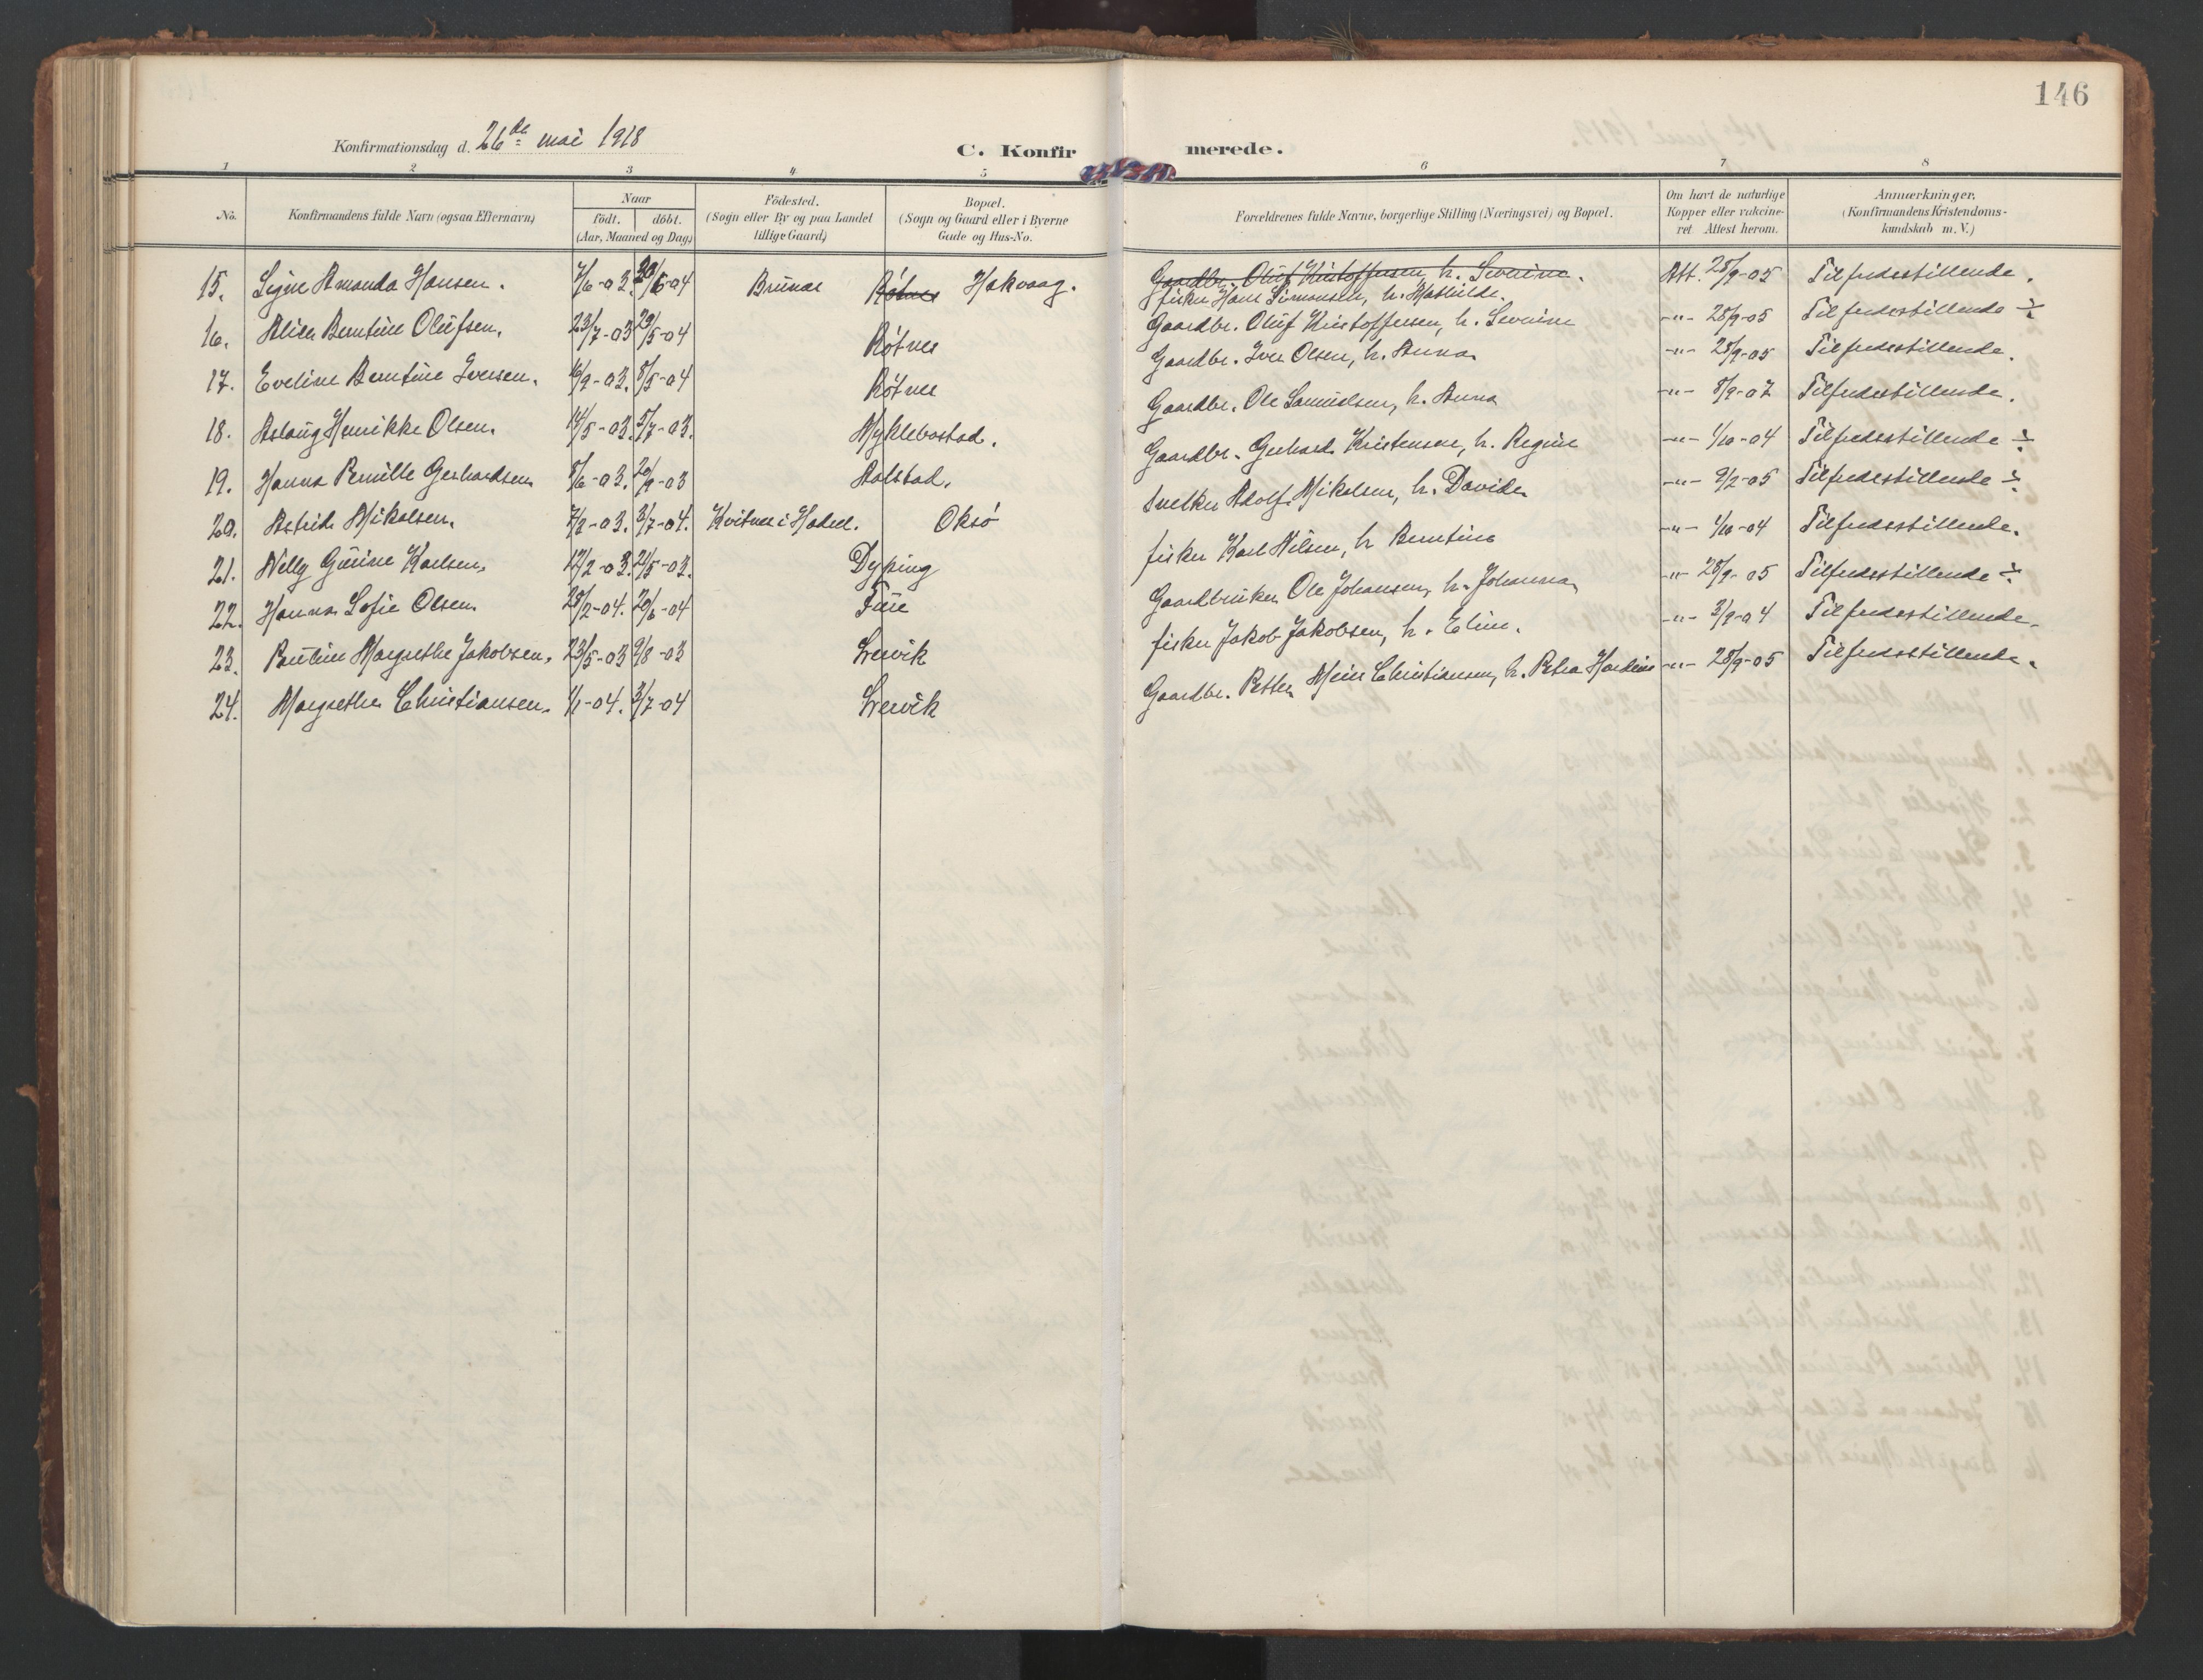 146
Konfirmationsdag d. 26de mai 1918
C. Konfirmerede.
1 2 3 4 5 6 7 8
No. Konfirmandens fulde Navn (ogsaa Efternavn) Naar født. døbt. (Aar, Maaned og Dag) Födested. (Sogn eller By og paa Landet tillige Gaard) Bopæl. (Sogn og Gaard eller i Byerne Gade og Hus-No. Forældrenes fulde Navne, borgerlige Stilling (Næringsvei) og Bopæl. Om havt de naturlige Kopper eller vakcineret. Attest herom. Anmærkninger. (Konfirmandens Kristendomskundskab m. V.)
15. Signe Amanda Hansen. 7/6-03. /6-04 Brunes Røtnes Hakvaag. Gaardbr. Oluf Kristoffersen, h. Severine. Att. 28/9-05 Tilfredsstillende.
fisker Hans Simonsen, h. Mathilde.
16. Alise Berntine Olufsen. 23/7-03 29/5-04 Røtnes Gaardbr. Oluf Kristoffersen, h. Severine -"- 28/9-05 Tilfredsstillende ÷
17. Eveline Berntine Iversen. 16/9-03. 8/5-04 Røtnes Gaardbr. Iver Olsen, h. Anna -"- 28/9-05 Tilfredsstillende.
18. Aslaug Henrikke Olsen. 14/5-03. 5/7-03. Myklebostad. Gaardbr. Ole Samuelsen, h. Anna -"- 8/9-07 Tilfredsstillende.
19. Hanna Pernille Gerhardsen 8/6-03. 20/9-03 Aalstad. Gaardbr. Gerhard Kristensen, h. Regine -"- 4/10-04 Tilfredsstillende ÷
20. Astrid Mikalsen. 7/2-03. 3/7-04. Kvitnes i Hadsel. Oksø Snekker Adolf Mikalsen, h. Davida -"- 9/2-05 Tilfredsstillende ÷
21. Nelly Gurine Karlsen. 12/2-03. 21/5-03. Dyping fisker Karl Nilsen, h Berntine -"- 4/10-04 Tilfredsstillende.
22. Hanna Sofie Olsen. 28/2-04. 20/6-04 Fure Gaardbruker Ole Johansen, h. Johanna -"- 28/9-05 Tilfredsstillende ÷
23. Pauline Margrethe Jakobsen. 23/5-03 9/8-03 Leervik fisker Jakob Jakobsen, h. Eline. -"- 3/9-04 Tilfredsstillende.
24. Margrethe Christiansen. 1/1-04. 3/7-04 Leervik Gaardbr. Petter Meier Christiansen, h. Petra Hardine -"- 28/9-05 Tilfredsstillende.